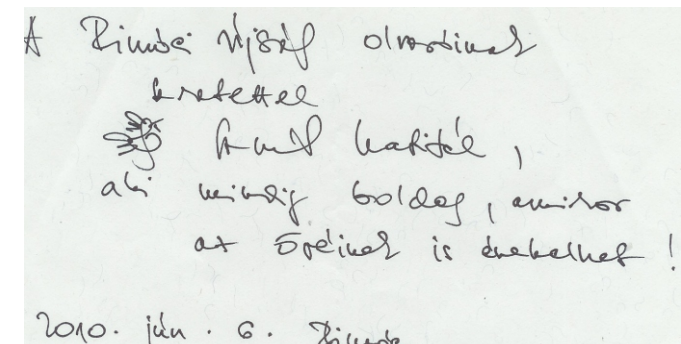 A Rimóci Újság olvasóinak
szeretettel
Katitól,
aki mindig boldog, amikor
az Övéinek is énekelhet!
2010. jún. 6. Rimóc